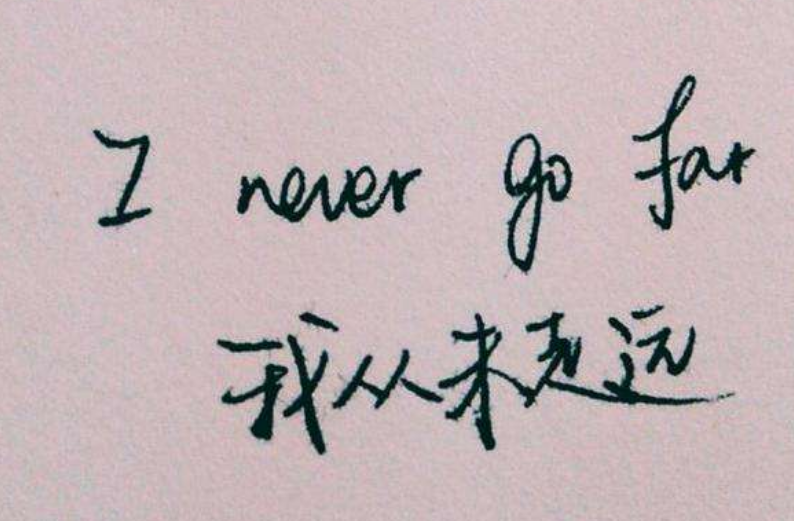 I never go far
我从未走远